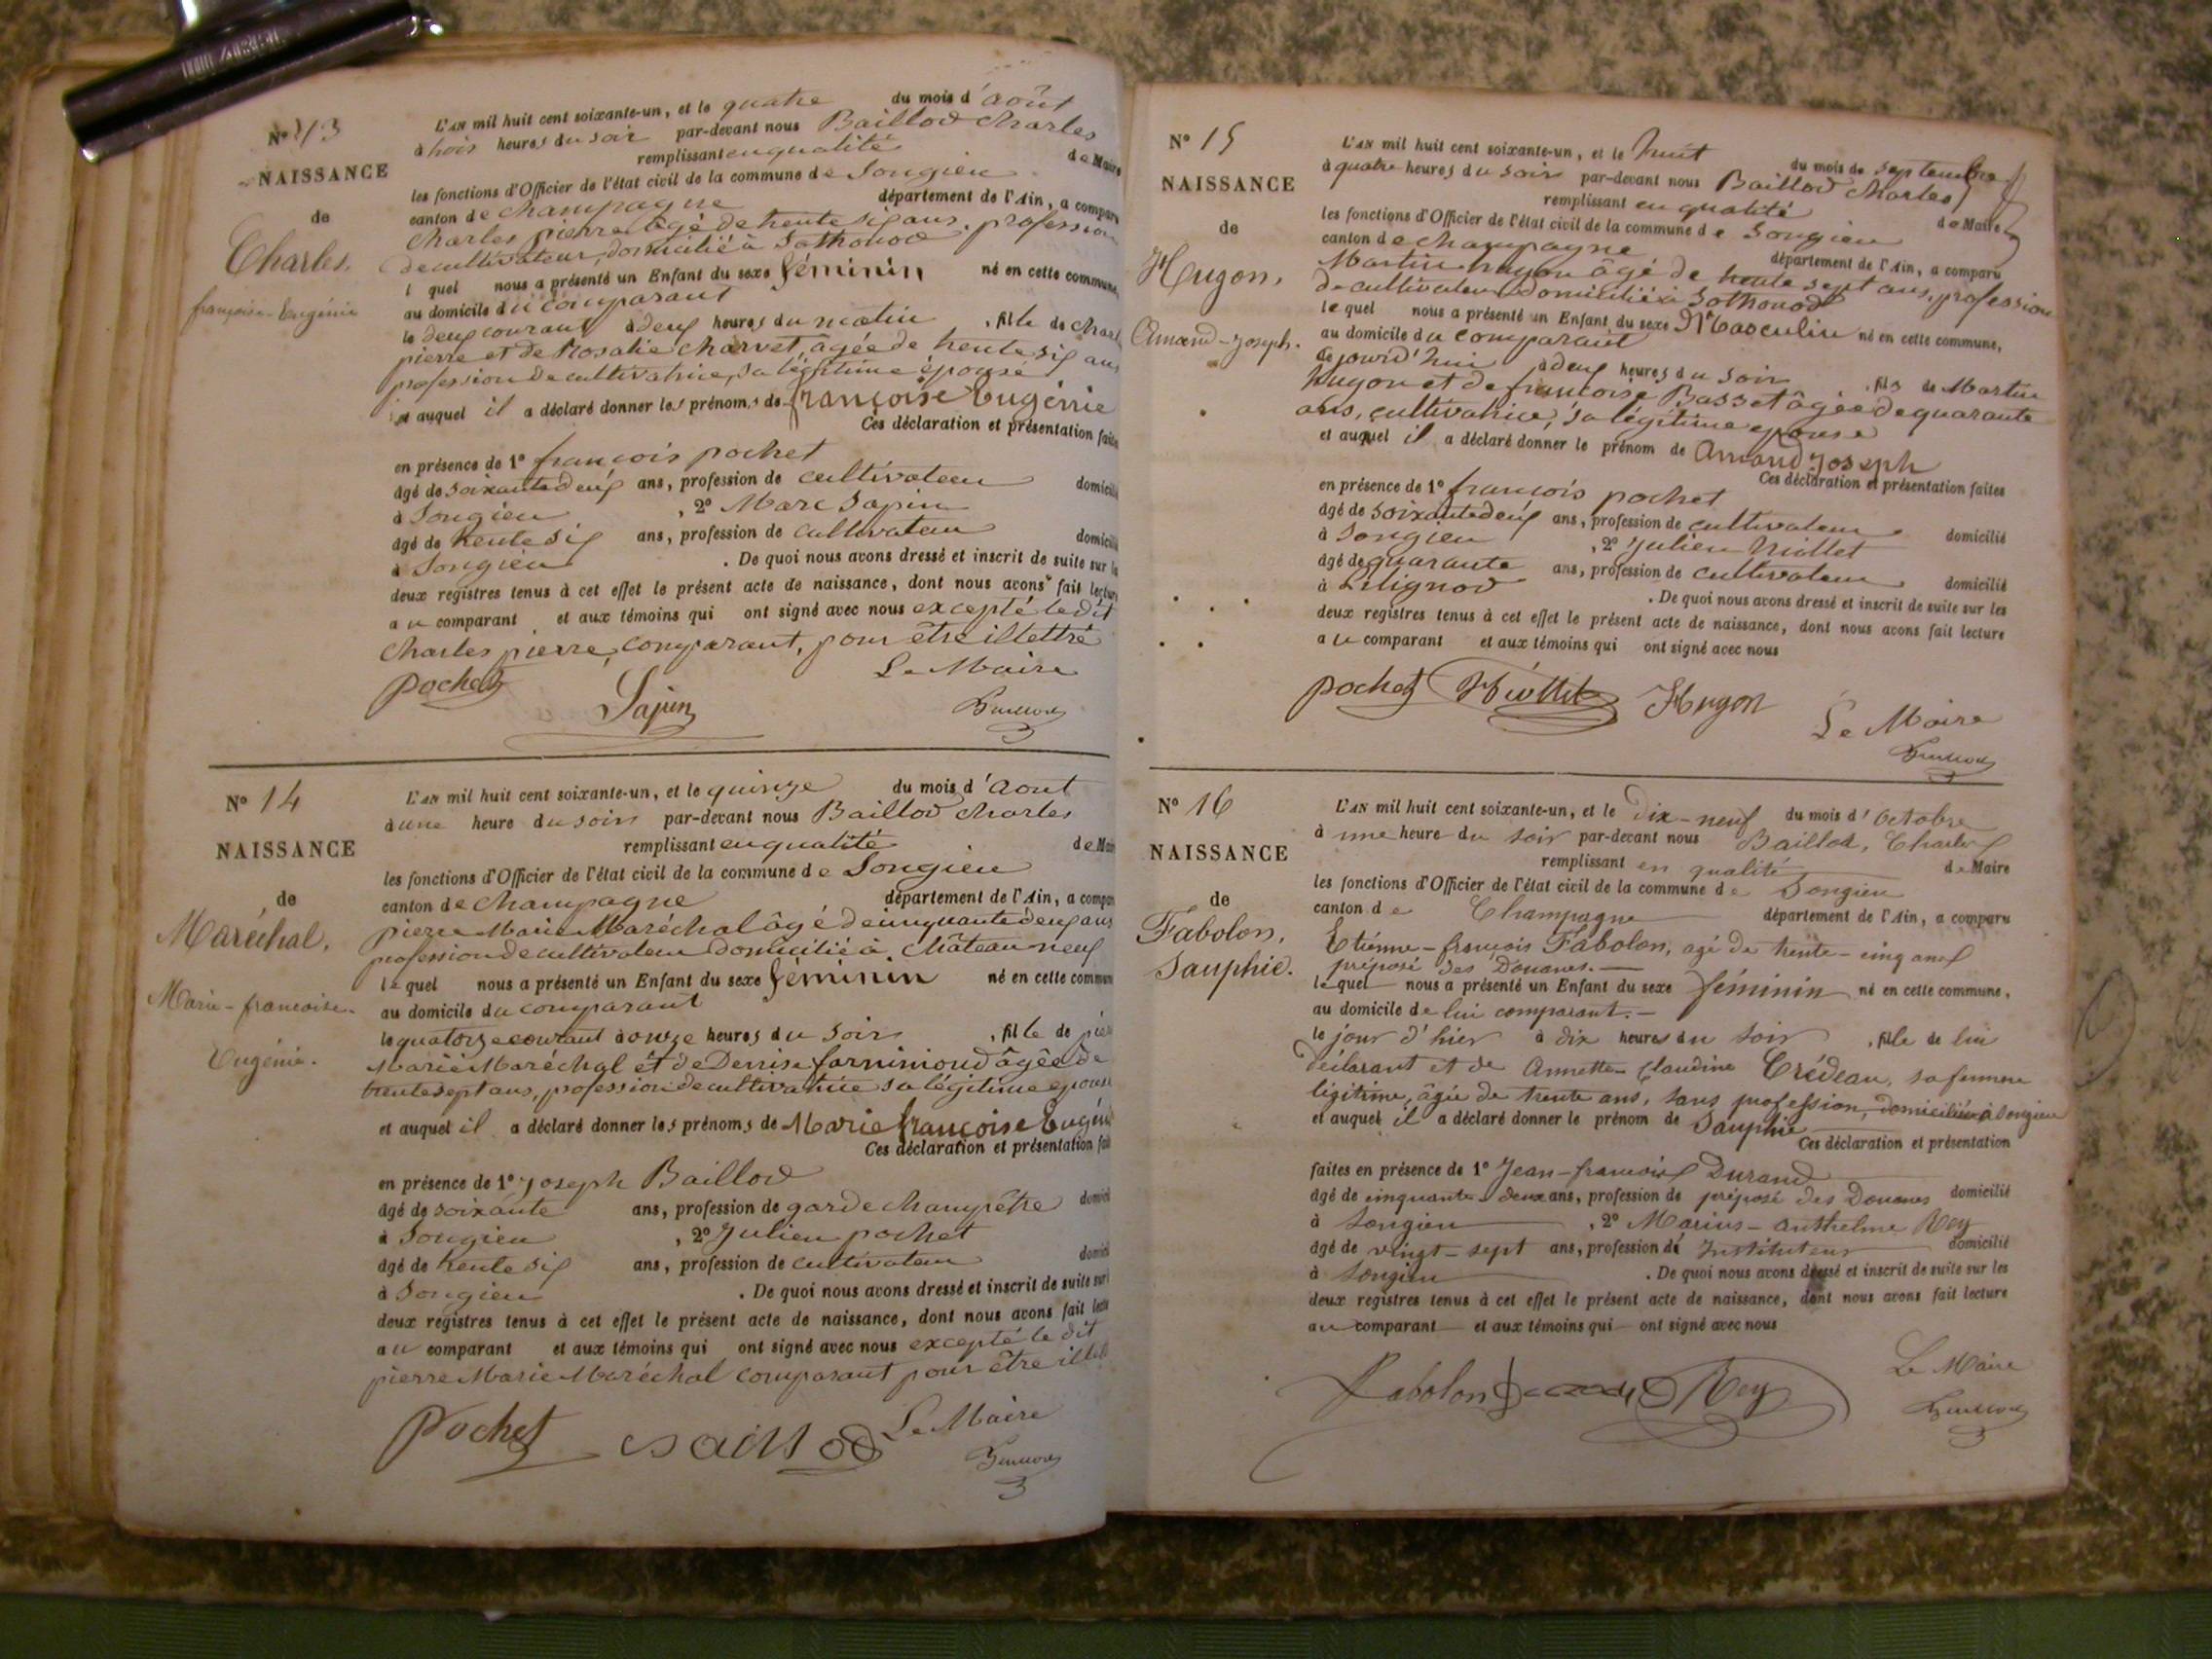 N° 13
NAISSANCE
de
Charles.
françoise Eugénie
L'AN mil huit cent soixante-un, et le quatre du mois d'août
à trois heures du soir par-devant nous Baillod Charles
remplissant en qualité de Maire
les fonctions d'Officier de l'état civil de la commune de Songieu
canton de Champagne département de l'Ain, a comparu
Charles pierre âgé de trente six ans, profession
de cultivateur, domicilié à Sothonod
l quel nous a présenté un Enfant du sexe féminin né en cette commune,
au domicile du comparant
le deux courant à deux heures du matin, fille de Charles
pierre et de Rosalie Charvet, agée de trente six ans
profession de cultivatrice, sa légitime épouse
et auquel il a déclaré donner les prénoms de françoise Eugénie
Ces déclaration et présentation faites
en présence de 1° françois pochet
âgé de soixante deux ans, profession de cultivateur domicilié
à Songieu, 2° Marc Sapin
âgé de trente six ans, profession de cultivateur domicilié
à Songieu. De quoi nous avons dressé et inscrit de suite sur les
deux registres tenus à cet effet le présent acte de naissance, dont nous avons fait lecture
au comparant et aux témoins qui ont signé avec nous excepté le dit
Charles pierre, comparant, pour être illettré
Le Maire
Pochet Sapin Baillod
N° 14
NAISSANCE
de
Maréchal.
Marie-francoise.
Eugénie.
L'AN mil huit cent soixante-un, et le quinze du mois d'Aout
à une heure du soir par-devant nous Baillod Charles
remplissant en qualité de Maire
les fonctions d'Officier de l'état civil de la commune de Songieu
canton de Champagne département de l'Ain, a comparu
pierre Marie Maréchal âgé de cinquante deux ans
profession de cultivateur domicilié à Château neuf
lequel nous a présenté un Enfant du sexe féminin né en cette commune
au domicile du comparant
le quatorze courant à onze heures du soir, fille de pierre
Marie Maréchal et de Denise âgée de
trente sept ans, profession de cultivatrice sa légitime epouse
et auquel il a déclaré donner les prénoms de Marie françoise Eugénie
Ces déclaration et présentation faites
en présence de 1° Joseph Baillod
âgé de soixante ans, profession de garde champêtre domicilié
à Songieu, 2° Julien pochet
âgé de trente six ans, profession de cultivateur domicilié
à Songieu. De quoi nous avons dressé et inscrit de suite sur
deux registres tenus à cet effet le présent acte de naissance, dont nous avons fait lecture
au comparant et aux témoins qui ont signé avec nous excepté le dit
pierre Marie Maréchal comparant pour être
Pochet Baillod Le Maire
Baillod
N° 15
NAISSANCE
de
Hugon,
Amand-Joseph.
L'AN mil huit cent soixante-un, et le huit du mois de Septembre
à quatre heures du soir par-devant nous Baillod Charles
remplissant en qualité de Maire
les fonctions d'Officier de l'état civil de la commune de Songieu
canton de Champagne département de l'Ain, a comparu
Martin hugon âgé de trente sept ans, profession
de cultivateur domicilié à Sothonod
lequel nous a présenté un Enfant du sexe Masculin né en cette commune,
au domicile du comparant
ce jourd'hui à deux heures du soir, fils de Martin
hugon et de françoise Basset âgée de quarante
ans, cultivatrice, sa légitime epouse
et auquel il a déclaré donner le prénom de Amand Joseph
Ces déclaration et présentation faites
en présence de 1° françois pochet
âgé de soixante deux ans, profession de cultivateur domicilié
à Songieu, 2° Julien
âgé de quarante ans, profession de cultivateur domicilié
à Lilignod. De quoi nous avons dressé et inscrit de suite sur les
deux registres tenus à cet effet le présent acte de naissance, dont nous avons fait lecture
au comparant et aux témoins qui ont signé avec nous
pochet Hugon Le Maire
Baillod
N° 16
NAISSANCE
de
Fabolon,
Sauphie.
L'AN mil huit cent soixante-un, et le dix-neuf du mois d'Octobre
à une heure du soir par-devant nous Baillod, Charles
remplissant en qualité de Maire
les fonctions d'Officier de l'état civil de la commune de Songieu
canton de Champagne département de l'Ain, a comparu
Etienne-françois Fabolon, agé de trente-cinq ans
préposé des Douanes.
lequel nous a présenté un Enfant du sexe féminin né en cette commune,
au domicile de lui comparant.
le jour d'hier à dix heures du soir, fille de lui
déclarant et de Annette Claudine Crédeau, sa femme
légitime, âgée de trente ans, sans profession, domiciliée à Songieu
et auquel il a déclaré donner le prénom de Sauphie
Ces déclaration et présentation
faites en présence de 1° Jean-francois Durand
âgé de cinquante-deux ans, profession de préposé des Douanes domicilié
à Songieu, 2° Marius-anthelme Rey
âgé de vingt-sept ans, profession de Instituteur domicilié
à Songieu. De quoi nous avons dressé et inscrit de suite sur les
deux registres tenus à cet effet le présent acte de naissance, dont nous avons fait lecture
au comparant et aux témoins qui ont signé avec nous
Fabolon Rey Le Maire
Baillod